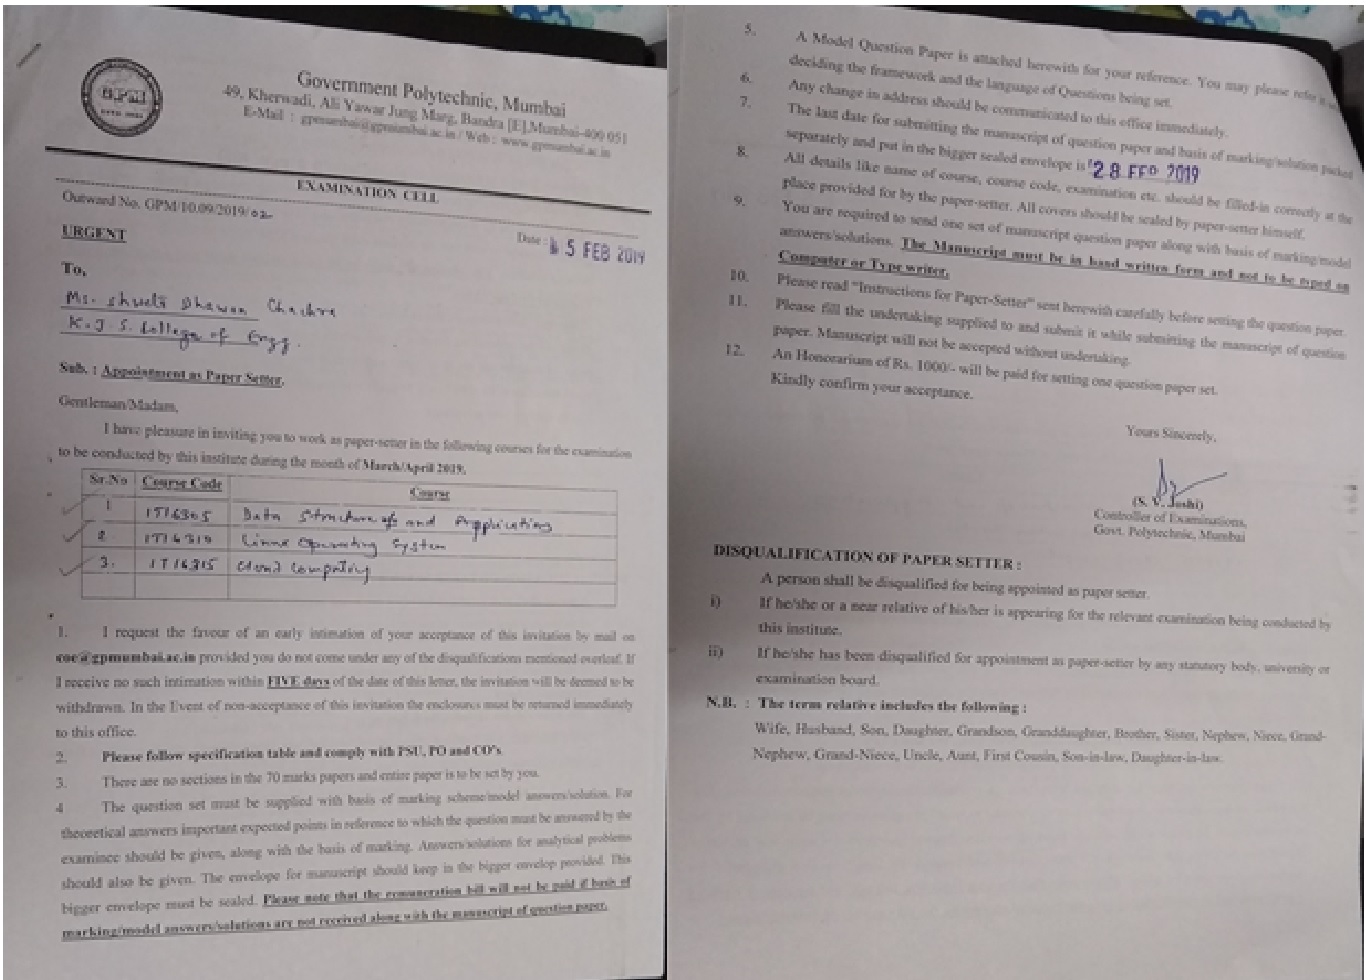 GPM
Government Polytechnic, Mumbai
49, Kherwadi, Ali Yawar Jung Marg, Bandra [E],Mumbai-400 051
E-Mail : gpmumbai@gpmumbai.ac.in / Web : www.gpmumbai.ac.in
EXAMINATION CELL
Outward No. GPM/10.09/2019/02
Date : 5 FEB 2019
URGENT
To,
Ms. Shweta Dhawan Chachra
K.J.S. College of Engg.
Sub. : Appointment as Paper Setter.
Gentleman/Madam,
I have pleasure in inviting you to work as paper-setter in the following courses for the examination
to be conducted by this institute during the month of March/April 2019.
Sr.No Course Code Course
1 IT16305 Data Structures and Application
2 IT16310 Linux Operating System
3. IT16315 Cloud Computing
1. I request the favour of an early intimation of your acceptance of this invitation by mail on
coe@gpmumbai.ac.in provided you do not come under any of the disqualifications mentioned overleaf. If
I receive no such intimation within FIVE days of the date of this letter, the invitation will be deemed to be
withdrawn. In the Event of non-acceptance of this invitation the enclosures must be returned immediately
to this office.
2. Please follow specification table and comply with PSU, PO and CO's
3. There are no sections in the 70 marks papers and entire paper is to be set by you.
4 The question set must be supplied with basis of marking scheme/model answers/solution. For
theoretical answers important expected points in reference to which the question must be answered by the
examinee should be given, along with the basis of marking. Answers/solutions for analytical problems
should also be given. The envelope for manuscript should keep in the bigger envelop provided. This
bigger envelope must be sealed. Please note that the remuneration bill will not be paid if basis of
marking/model answers/solutions are not received along with the manuscript of question paper.
5. A Model Question Paper is attached herewith for your reference. You may please refer it
deciding the framework and the language of Questions being set.
6. Any change in address should be communicated to this office immediately.
7. The last date for submitting the manuscript of question paper and basis of marking/solution packed
separately and put in the bigger sealed envelope is 28 FEB 2019
8. All details like name of course, course code, examination etc. should be filled-in correctly at the
place provided for by the paper-setter. All covers should be sealed by paper-setter himself.
9. You are required to send one set of manuscript question paper along with basis of marking/model
answers/solutions. The Manuscript must be in hand written form and not to be typed on
Computer or Type writer.
10. Please read "Instructions for Paper-Setter" sent herewith carefully before setting the question paper.
11. Please fill the undertaking supplied to and submit it while submitting the manuscript of question
paper. Manuscript will not be accepted without undertaking.
12. An Honorarium of Rs. 1000/- will be paid for setting one question paper set.
Kindly confirm your acceptance.
Yours Sincerely,
(S. V. Joshi)
Controller of Examinations,
Govt. Polytechnic, Mumbai
DISQUALIFICATION OF PAPER SETTER :
A person shall be disqualified for being appointed as paper setter.
i) If he/she or a near relative of his/her is appearing for the relevant examination being conducted by
this institute.
ii) If he/she has been disqualified for appointment as paper-setter by any statutory body, university or
examination board.
N.B. : The term relative includes the following :
Wife, Husband, Son, Daughter, Grandson, Granddaughter, Brother, Sister, Nephew, Niece, Grand-
Nephew, Grand-Niece, Uncle, Aunt, First Cousin, Son-in-law, Daughter-in-law.